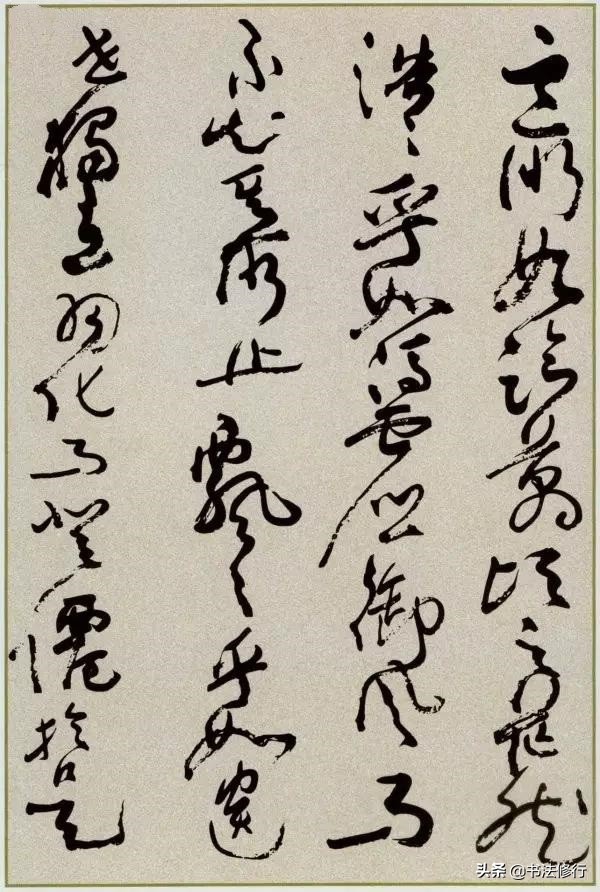 之所如凌萬頃之茫然
浩〻乎如馮虛御風而
不知其所止飄〻乎如遺
世獨立羽化而登僊於是
头条 @书法修行